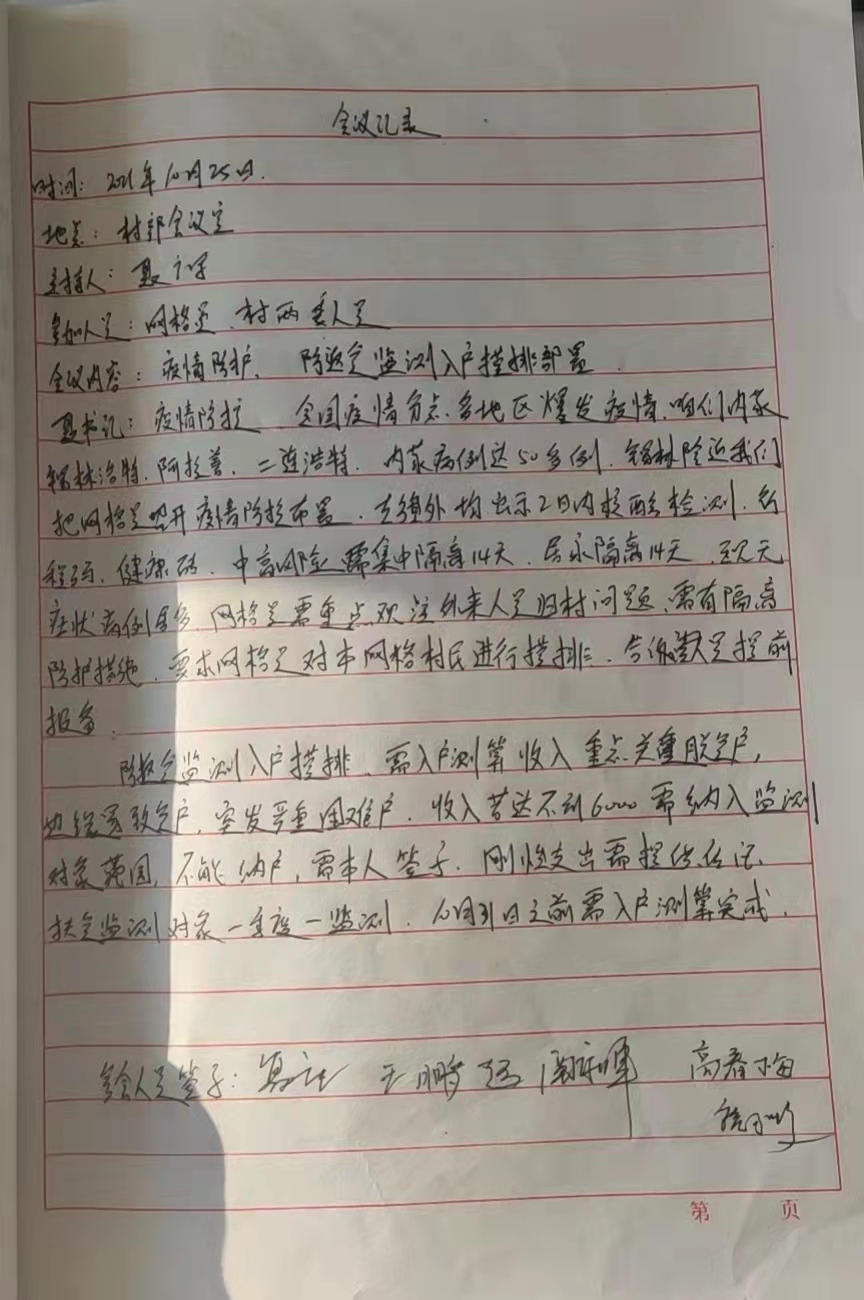 会议记录
时间：2021年10月25日.
地点：村部会议室
主持人：
参加人员：网格员、村两委人员
会议内容：疫情防护、防返贫监测入户摸排部署.
书记：疫情防控 全国疫情多点.多地区爆发疫情.咱们内蒙
锡林浩特.阿拉善.二连浩特.内蒙病例达50多例.锡林 近我们
把网格员 开疫情防控布置. 外均出示2日内核酸检测.行
程码.健康码.中高风险需集中隔离14天.居家隔离14天. 无
症状病例居多.网格员需重点关注外来人员归村问题.需有隔离
防护措施.要求网格员对本网格村民进行摸排. 提前
报备.
防返贫监测入户摸排.需入户测算收入重点关注脱贫户,
边缘易致贫户.突发严重困难户.收入若达不到6000需纳入监测
对象范围,不能纳户,需本人签字.刚性支出需提供佐证.
扶贫监测对象一季度一监测.10月31日之前需入户测算完成.
参会人员签字: 王鹏 高春梅
第 页